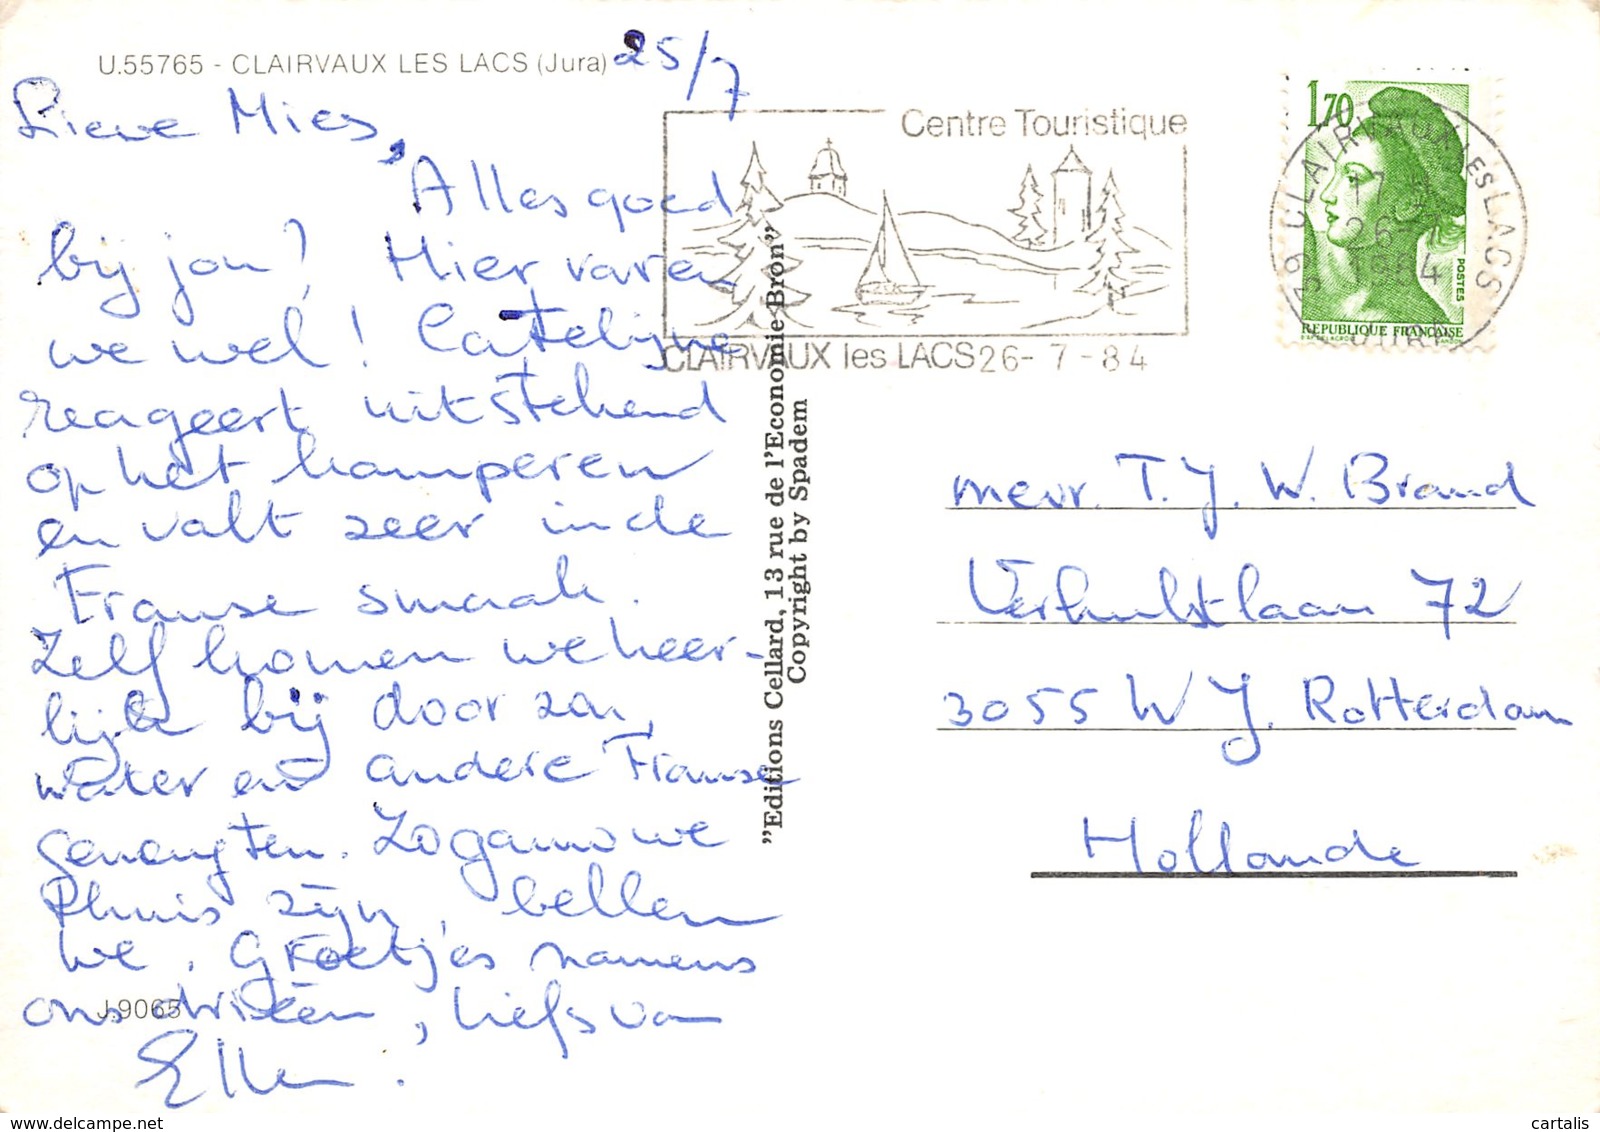 U.55765 - CLAIRVAUX LES LACS (Jura)
25/7
Lieve Mies,
Alles goed
bij jou? Hier varen
we wel! Catelijne
reageert uitstekend
op het kamperen
en valt zeer in de
Franse smaak.
Zelf komen we heer-
lijk bij door zon,
water en andere Franse
geneugten. Zogauw we
thuis zijn, bellen
we. Groetjes namens
ons drieën, liefs van
Ellen.
J.9065
Centre Touristique
CLAIRVAUX les LACS 26-7-84
"Editions Cellard, 13 rue de l'Economie Bron"
Copyright by Spadem
1,70
POSTES
REPUBLIQUE FRANÇAISE
39 CLAIRVAUX LES LACS
17
26
1984
JURA
mevr. T.J.W. Brand
Verhulstlaan 72
3055 WJ. Rotterdam
Hollande
cartalis